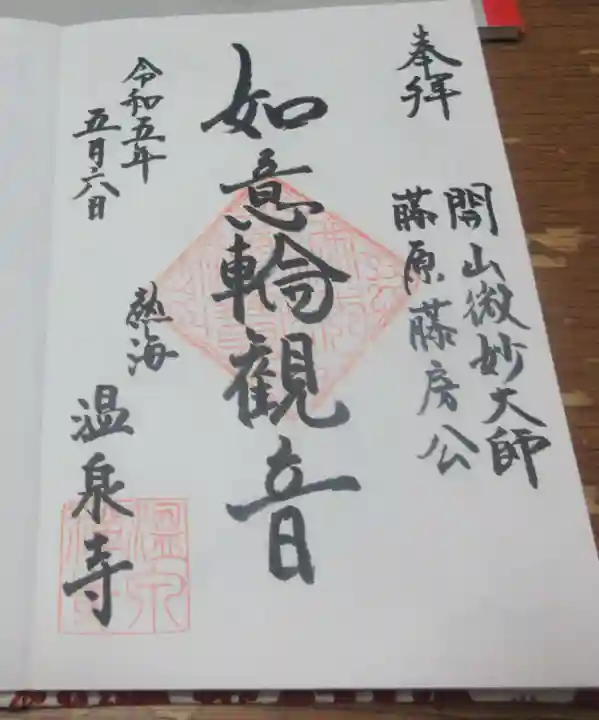 奉拝
開山微妙大師
藤原藤房公
如意輪觀音
令和五年
五月六日
熱海
温泉寺